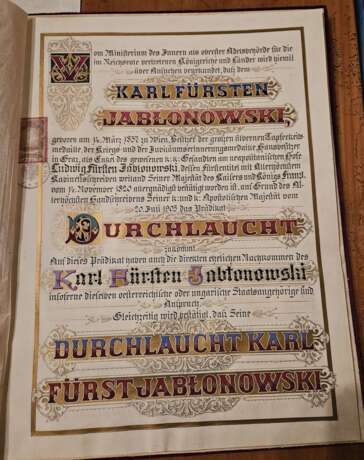 Vom Ministerium des Innern als oberster Adelsbehörde für die
im Reichsrate vertretenen Königreiche und Länder wird hiemit
über Ansuchen beurkundet, daß dem
KARL FÜRSTEN
JABŁONOWSKI,
geboren am 14. März 1857 in Wien, Besitzer der großen silbernen Tapferkeits-
medaille, der Kriegs- und der Jubiläumserinnerungsmedaille, Hausbesitzer
in Graz, als Enkel des gewesenen k: k: Gesandten am neapolitanischen Hofe
Ludwig Fürsten Jabłonowski, dessen Fürstentitel mit Allerhöchstem
Kabinetschreiben weiland Seiner Majestät des Kaisers und Königs Franz I.
vom 14. November 1820 allergnädigst bestätigt worden ist, auf Grund des Al-
lerhöchsten Handschreibens Seiner k: und k: Apostolischen Majestät vom
20. Juni 1905 das Prädikat
DURCHLAUCHT
zukommt.
Auf dieses Prädikat haben auch die direkten ehelichen Nachkommen des
Karl Fürsten Jabłonowski
insoferne dieselben oesterreichische oder ungarische Staatsangehörige sind
Anspruch.
Gleichzeitig wird bestätigt, daß Seine
DURCHLAUCHT KARL
FÜRST JABŁONOWSKI